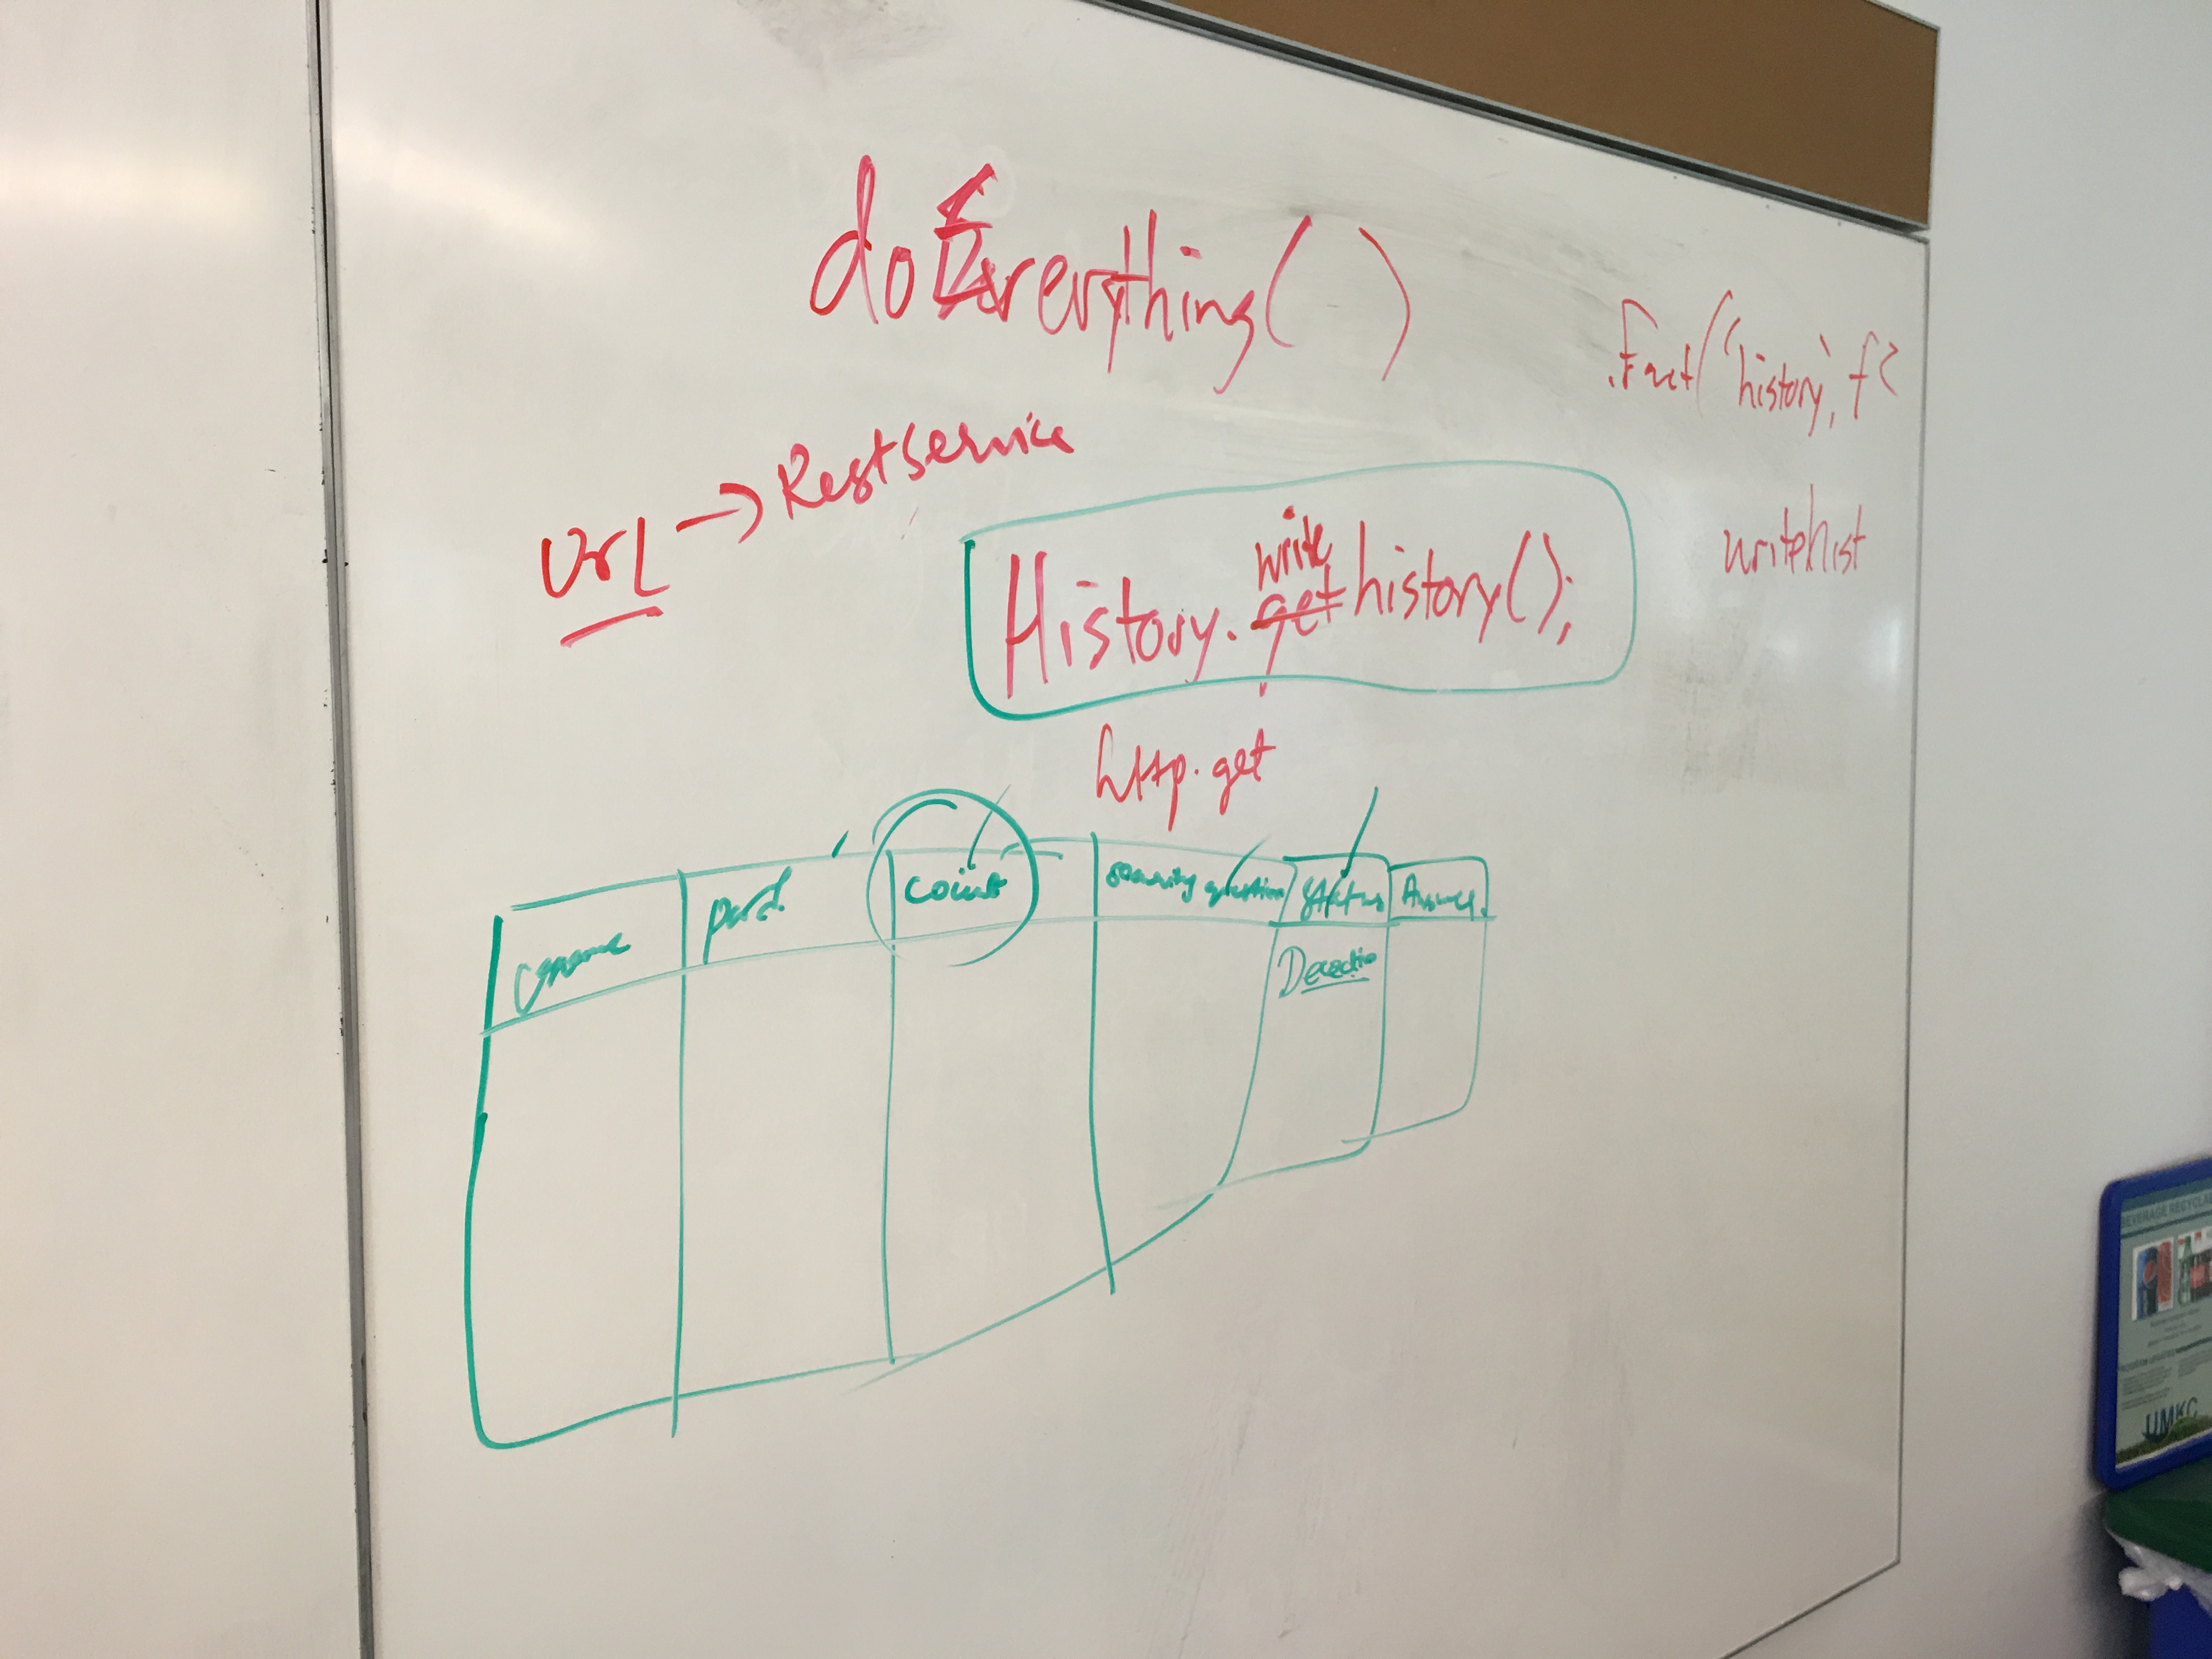 doEverything( )
.Fact('history', f
Url → RestService
write
History. get history();
writehist
http.get
pwd
count
security question
status
Answer
BEVERAGE RECYCLA
UMKC